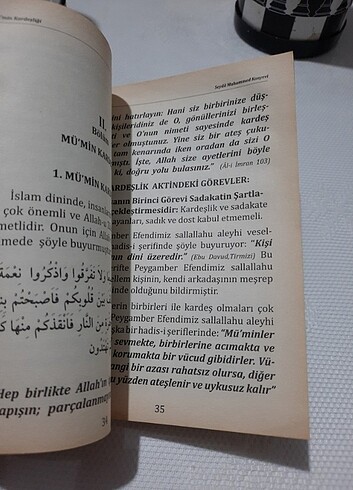 'min Kardeşliği
II.
Bölüm
MÜ'MİN KAR
1. MÜ'MİN KAR
İslam dininde, insan
çok önemli ve Allah-u
metlidir. Onun için A
imede şöyle buyurmuş
وَلَا تَفَرَّقُوا وَاذْكُرُوا نِعْمَةَ
بَيْنَ قُلُوبِكُمْ فَأَصْبَحْتُمْ
مِنَ النَّارِ فَأَنْقَذَكُمْ مِنْهَا
تَهْتَدُونَ
Hep birlikte Allah'ın
yapışın; parçalanmay
34
Seyda Muhammed Konyevi
ini hatırlayın: Hani siz birbirinize düş-
kişileridiniz de O, gönüllerinizi birleş-
ve O'nun nimeti sayesinde kardeş
er olmuştunuz. Yine siz bir ateş çuku-
tam kenarında iken oradan da sizi O
mıştı. İşte, Allah size ayetlerini böyle
ki, doğru yolu bulasınız." (Âl-i İmran 103)
KARDEŞLİK AKTİNDEKİ GÖREVLER:
anın Birinci Görevi Sadakatin Şartla-
çekleştirmesidir: Kardeşlik ve sadakate
ayanları, sadık ve dost kabul etmemeli.
amber Efendimiz sallallahu aleyhi vesel-
hadis-i şerifinde şöyle buyuruyor: "Kişi
nın dini üzeredir." (Ebu Davud,Tirmizi) Bu
fte Peygamber Efendimiz sallallahu
sellem kişinin, kendi arkadaşının meşrep
inde olduğunu bildirmiştir.
erin birbirleri ile kardeş olmaları çok
Peygamber Efendimiz sallallahu aleyhi
şka bir hadis-i şeriflerinde: "Mü'minler
sevmekte, birbirlerine acımakta ve
korumakta bir vücud gibidirler. Vü-
angi bir azası rahatsız olursa, diğer
u yüzden ateşlenir ve uykusuz kalır"
35